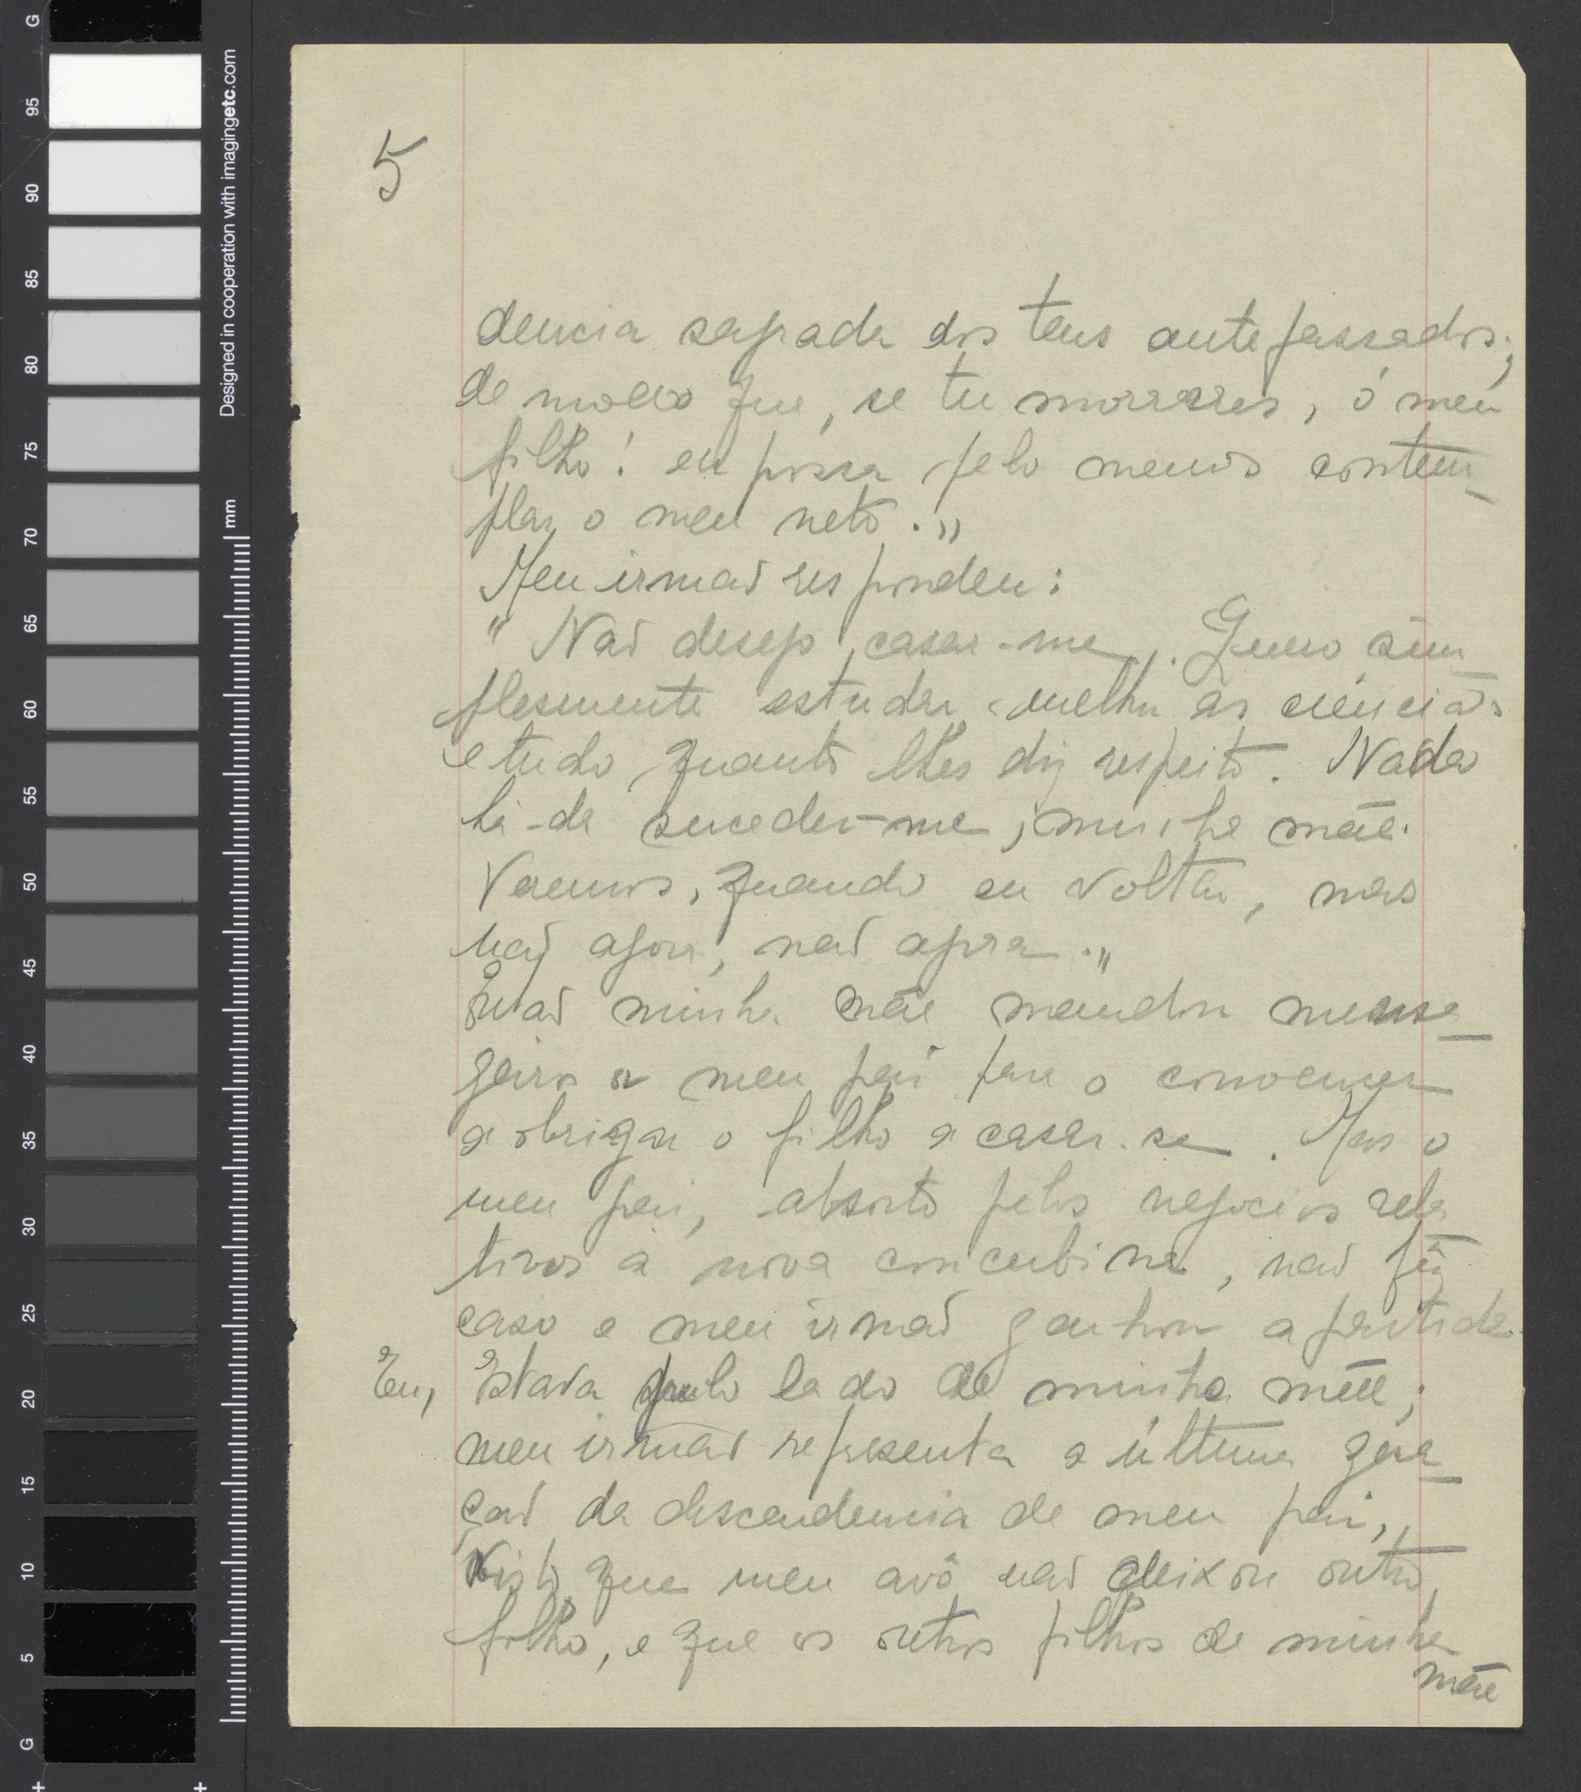 5
dencia sagrada dos teus antepassados;
de modo que, se tu morreres, ó meu
filho! eu possa pelo menos contem-
plar o meu neto."
Meu irmaõ respondeu:
"Naõ desejo casar-me. Quero sim-
plesmente estudar melhor as ciências
e tudo quanto lhes diz respeito. Nada
há-de suceder-me, minha mãe.
Veremos, quando eu voltar, mas
naõ agora, naõ agora."
Entaõ minha mãe mandou mensa-
geiros a meu pai para o convencer
a obrigar o filho a casar-se. Mas o
meu pai, absorto pelos negocios rela-
tivos à nova concubina, naõ fêz
caso e meu irmaõ ganhou a partida.
Eu, estava pelo lado de minha mãe;
meu irmaõ representa a última gera-
çaõ da descendencia de meu pai,
visto que meu avô naõ deixou outro
filho, e que os outros filhos de minha
mãe
G
95
90
85
80
75
70
65
60
55
50
45
40
35
30
25
20
15
10
5
G
mm
Designed in cooperation with imagingetc.com